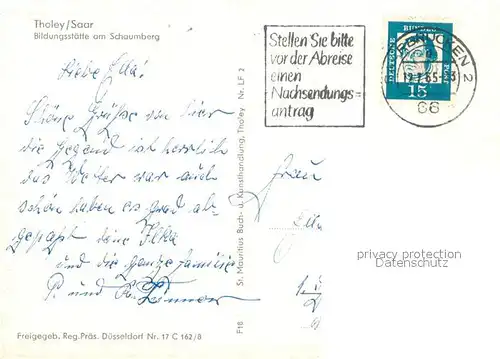 Tholey/Saar
Bildungsstätte am Schaumberg
Liebe Ella!
Schöne Grüße von hier
die Gegend ist herrlich
das Wetter war auch
schön haben es grad ab-
gepaßt deine Ilka
und die ganze Familie
P. und
Freigegeb. Reg.Präs. Düsseldorf Nr. 17 C 162/8
F18 St. Mauritius Buch- u. Kunsthandlung, Tholey Nr. LF 2
Stellen Sie bitte
vor der Abreise
einen
Nachsendungs=
antrag
DEUTSCHE BUNDESPOST
15
BRÜCKEN 2
65-
66
Frau
privacy protection
Datenschutz